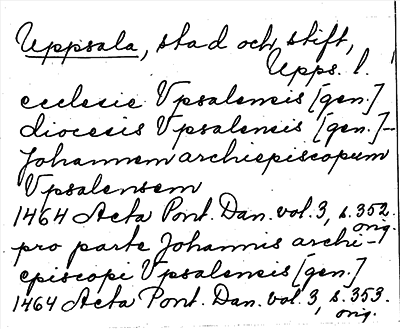 Uppsala, stad och stift,
Upps. l.
ecclesie Vpsalensis [gen.]
diocesis Vpsalensis [gen.] –
Johannem archiepiscopum
Vpsalensem
1464 Acta Pont. Dan. vol. 3, s. 352.
orig.
pro parte Johannis archi-
episcopi Vpsalensis [gen.]
1464 Acta Pont. Dan. vol. 3, s. 353.
orig.